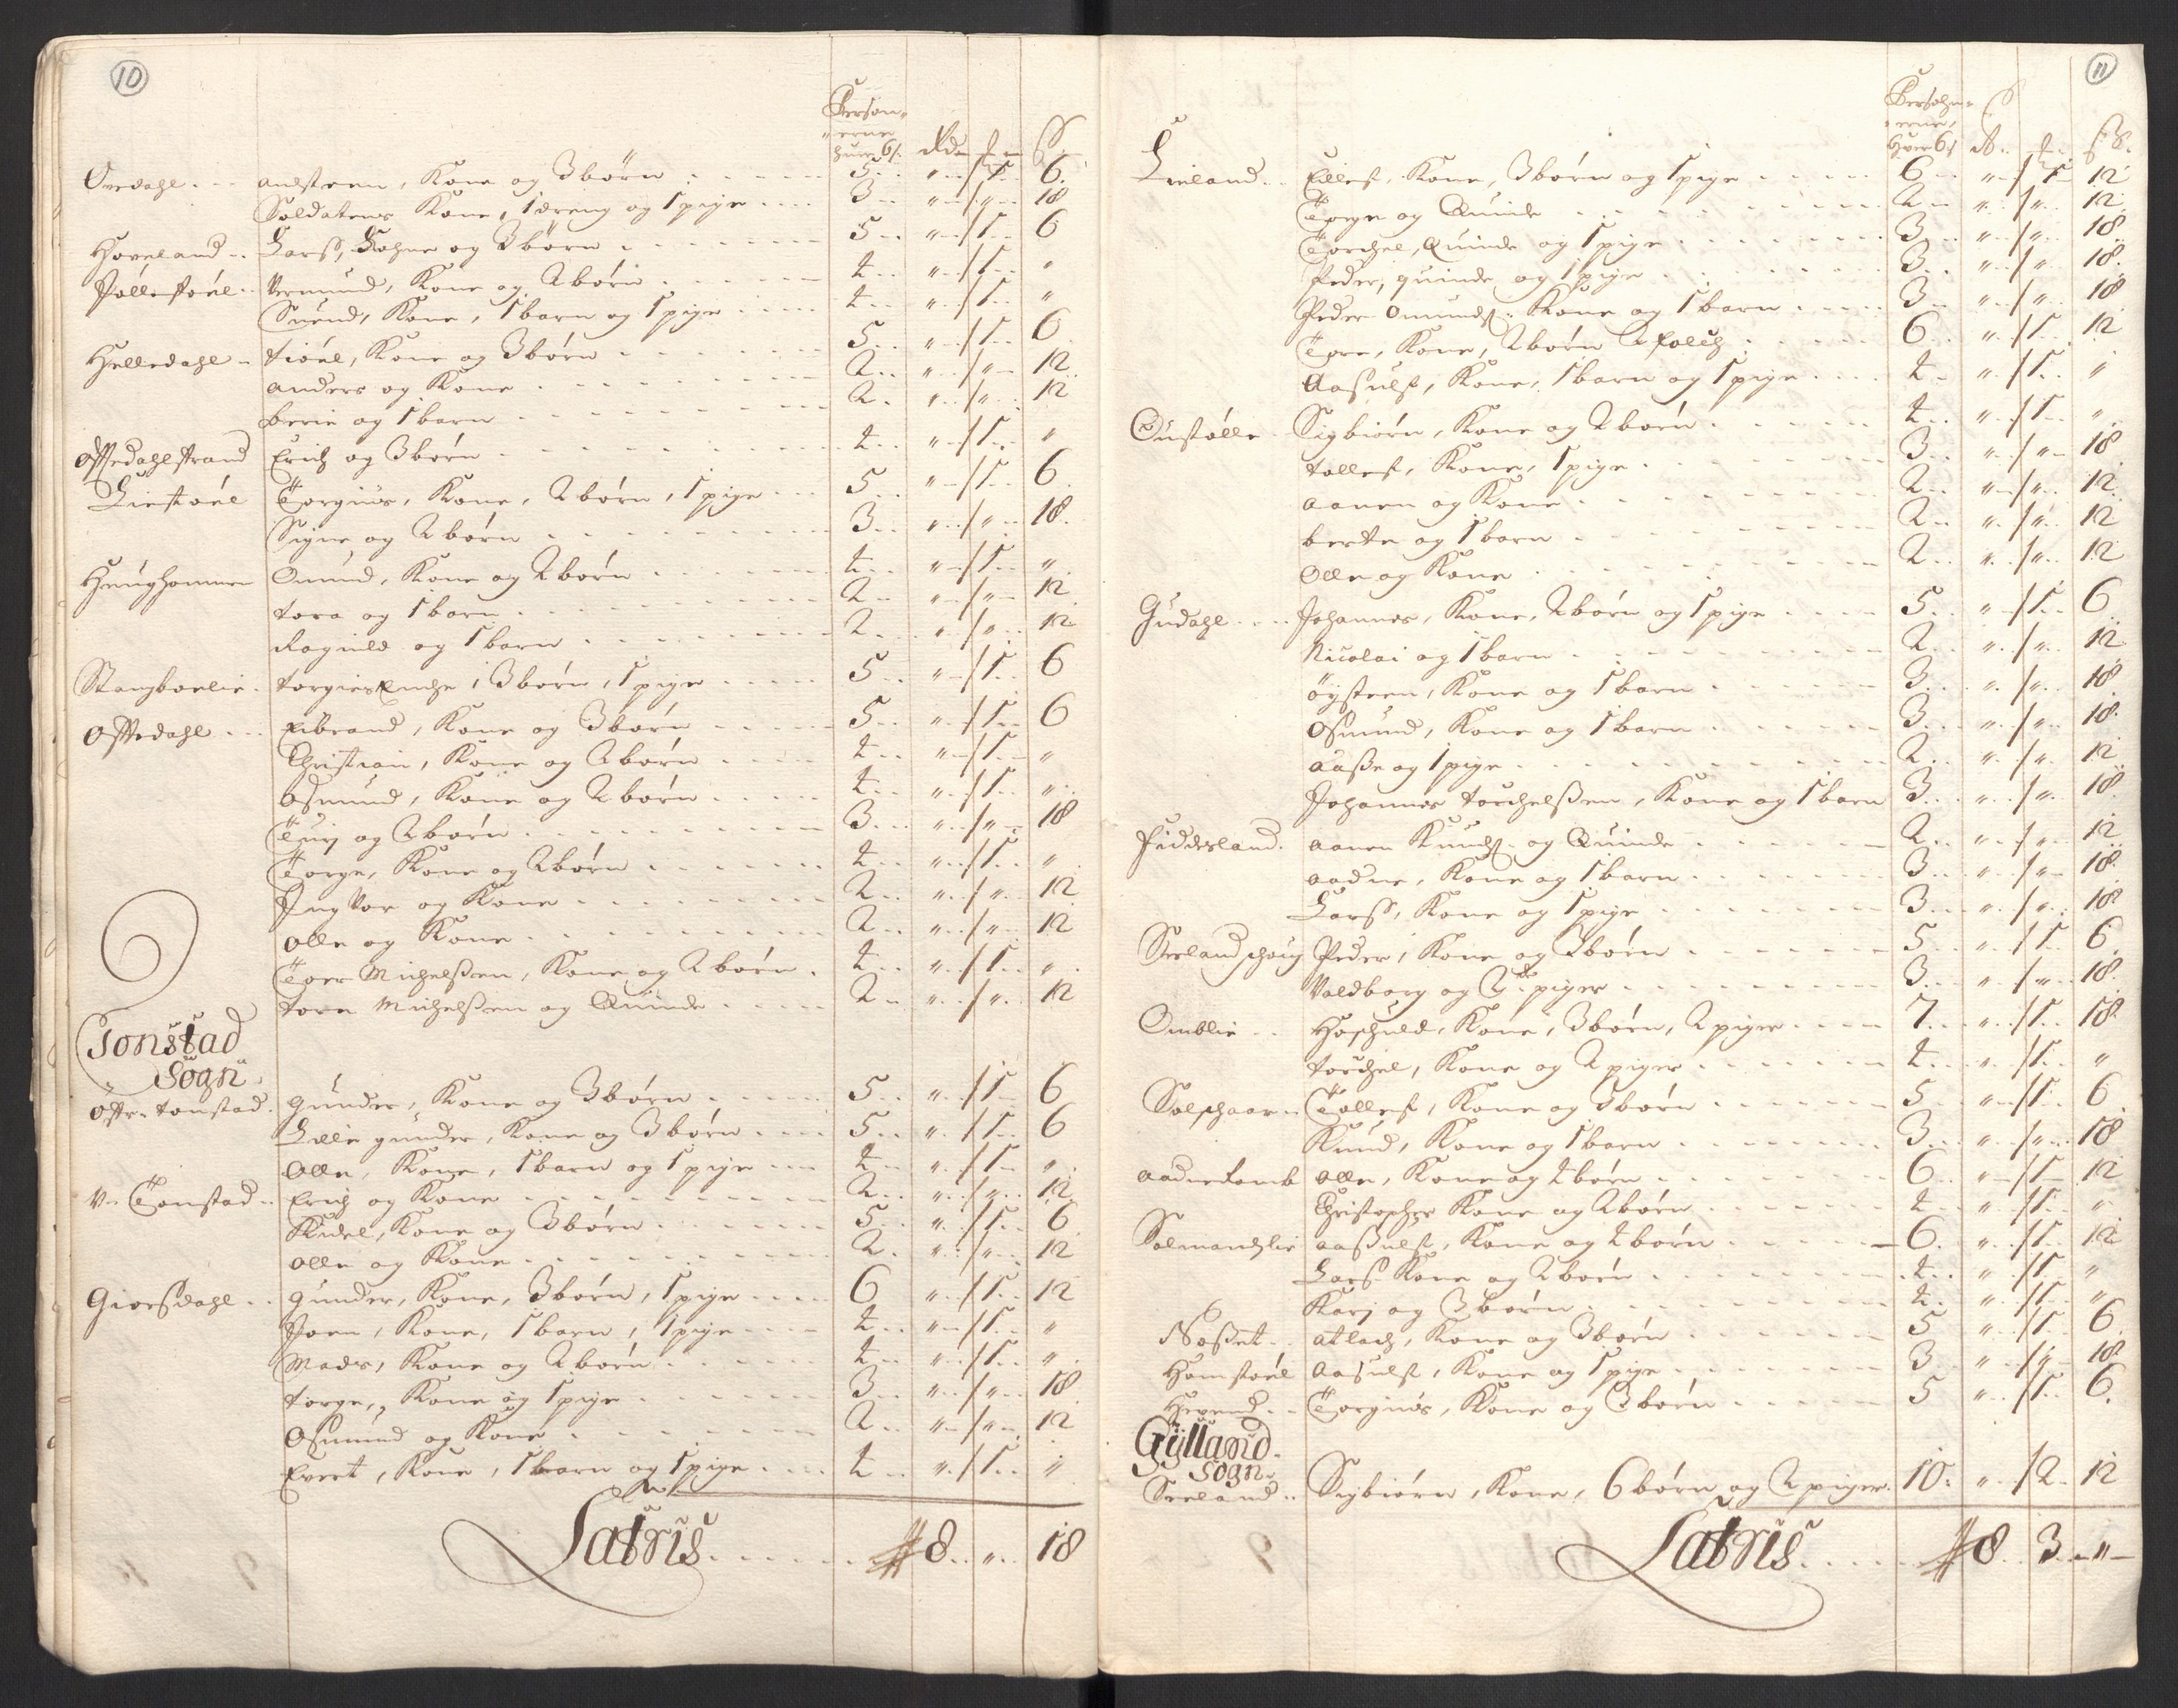 10
Person-
erne
huer 6 s. Rd. s.
Ovedahl . . aulsteen, Kone og 3 börn . . . 5 . . " . . / 1 . . 6
Soldatens Kone, 1 dreng og 1 pige . . . 3 . . " . . / " . . 18
Hoveland . . Larss, Kohne og 3 börn . . . 5 . . " . . / 1 . . 6
Jöllestöel . . Vermund, Kone og 2 börn . . . 4 . . " . . / 1 . . "
Suend, Kone, 1 barn og 1 pige . . . 4 . . " . . / 1 . . "
Helledahl . . Siöel, Kone og 3 börn . . . 5 . . " . . / 1 . . 6
anders og Kone . . . 2 . . " . . / " . . 12
berie og 1 barn . . . 2 . . " . . / " . . 12
Ossedahlstrand Erich og 3 börn . . . 4 . . " . . / 1 . . "
Liestöel Torgius, Kone, 2 börn, 1 pige . . . 5 . . " . . / 1 . . 6
Signe og 2 börn . . . 3 . . " . . / " . . 18
Haughommen Omund, Kone og 2 börn . . . 4 . . " . . / 1 . . "
tora og 1 barn . . . 2 . . " . . / " . . 12
Ragnild og 1 barn . . . 2 . . " . . / " . . 12
Stangborlie . torgies Enche, 3 börn, 1 pige . . . 5 . . " . . / 1 . . 6
Ossedahl . . Eibrand, Kone og 3 börn . . . 5 . . " . . / 1 . . 6
Christian, Kone og 2 börn . . . 4 . . " . . / 1 . . "
Osmund, Kone og 2 börn . . . 4 . . " . . / 1 . . "
Turj og 2 börn . . . 3 . . " . . / " . . 18
Torge, Kone og 2 börn . . . 4 . . " . . / 1 . . "
Ingvor og Kone . . . 2 . . " . . / " . . 12
olle og Kone . . . 2 . . " . . / " . . 12
Tore Michelssen, Kone og 2 börn . 4 . . " . . / 1 . . "
tore Michelssen og Quinde . . . 2 . . " . . / " . . 12
Tonstad
Sogn
öftr. tonstad . gunder, Kone og 3 börn . . . 5 . . " . . / 1 . . 6
Lille gunder, Kone og 3 börn . . . 5 . . " . . / 1 . . 6
olle, Kone, 1 barn og 1 pige . . . 4 . . " . . / 1 . . "
V. Tonstad . . Erich og Kone . . . 2 . . " . . / " . . 12
Kidel, Kone og 3 börn . . . 5 . . " . . / 1 . . 6
olle og Kone . . . 2 . . " . . / " . . 12
Giorsdahl . . gunder, Kone, 3 börn, 1 pige . . . 6 . . " . . / 1 . . 12
Joen, Kone, 1 barn, 1 pige . . . 4 . . " . . / 1 . . "
Mads, Kone og 2 börn . . . 4 . . " . . / 1 . . "
torge, Kone og 1 pige . . . 3 . . " . . / " . . 18
Osmund og Kone . . . 2 . . " . . / " . . 12
Evert, Kone, 1 barn og 1 pige . . . 4 . . " . . / 1 . . "
Latris . . . 8 . . " . . 18
11
Persohn-
erne,
huer 6 s
Lieland . . Ellef, Kone, 3 börn og 1 pige . . . 6 . . " . . / 1 . . 12
Torge og Quinde . . . 2 . . " . . / " . . 12
Torchel, Quinde og 1 pige . . . 3 . . " . . / " . . 18
Peder, quinde og 1 pige . . . 3 . . " . . / " . . 18
Peder Omunds. Kone og 1 barn . . . 3 . . " . . / " . . 18
Tore, Kone, 2 börn 2 folch . . . 6 . . " . . / 1 . . 12
Aasulf, Kone, 1 barn og 1 pige . . . 4 . . " . . / 1 . . "
Oustölle . Sigbiörn, Kone og 2 börn . . . 4 . . " . . / 1 . . "
tollef, Kone, 1 pige . . . 3 . . " . . / " . . 18
aanen og Kone . . . 2 . . " . . / " . . 12
berte og 1 barn . . . 2 . . " . . / " . . 12
olle og Kone . . . 2 . . " . . / " . . 12
Gudahl . . Johannes, Kone, 2 börn og 1 pige . . . 5 . . " . . / 1 . . 6
Nicolai og 1 barn . . . 2 . . " . . / " . . 12
öysteen, Kone og 1 barn . . . 3 . . " . . / " . . 18
Osmund, Kone og 1 barn . . . 3 . . " . . / " . . 18
aasse og 1 pige . . . 2 . . " . . / " . . 12
Johannes torchelssen, Kone og 1 barn 3 . . " . . / " . . 18
Fiddesland . aanen Knuds. og Quinde . . . 2 . . " . . / " . . 12
aadne, Kone og 1 barn . . . 3 . . " . . / " . . 18
Larss, Kone og 1 pige . . . 3 . . " . . / " . . 18
Peder, Kone og 3 börn . . . 5 . . " . . / 1 . . 6
Valdborg og 2de piger . . . 3 . . " . . / " . . 18
Omblie . . Kone, 3 börn, 2 piger . . . 7 . . " . . / 1 . . 18
torchel, Kone og 2 piger . . . 4 . . " . . / 1 . . "
Tollef, Kone og 3 börn . . . 5 . . " . . / 1 . . 6
Knud, Kone og 1 barn . . . 3 . . " . . / " . . 18
olle, Kone og 4 börn . . . 6 . . " . . / 1 . . 12
Christopher Kone og 2 börn . . . 4 . . " . . / 1 . . "
Salmandslie aassulf, Kone og 4 börn . . . 6 . . " . . / 1 . . 12
Lars Kone og 2 börn . . . 4 . . " . . / 1 . . "
Karj og 3 börn . . . 4 . . " . . / 1 . . "
Nosset . . atlach, Kone og 3 börn . . . 5 . . " . . / 1 . . 6
Homstöel Aasulf, Kone og 1 pige . . . 3 . . " . . / " . . 18
Torgius, Kone og 3 börn . . . 5 . . " . . / 1 . . 6
Gÿlland
Sogn
Seeland . . Sigbiörn, Kone, 6 börn og 2 piger . 10 . . " . . / 2 . . 12
Latris . . . 8 . . 3 . . "